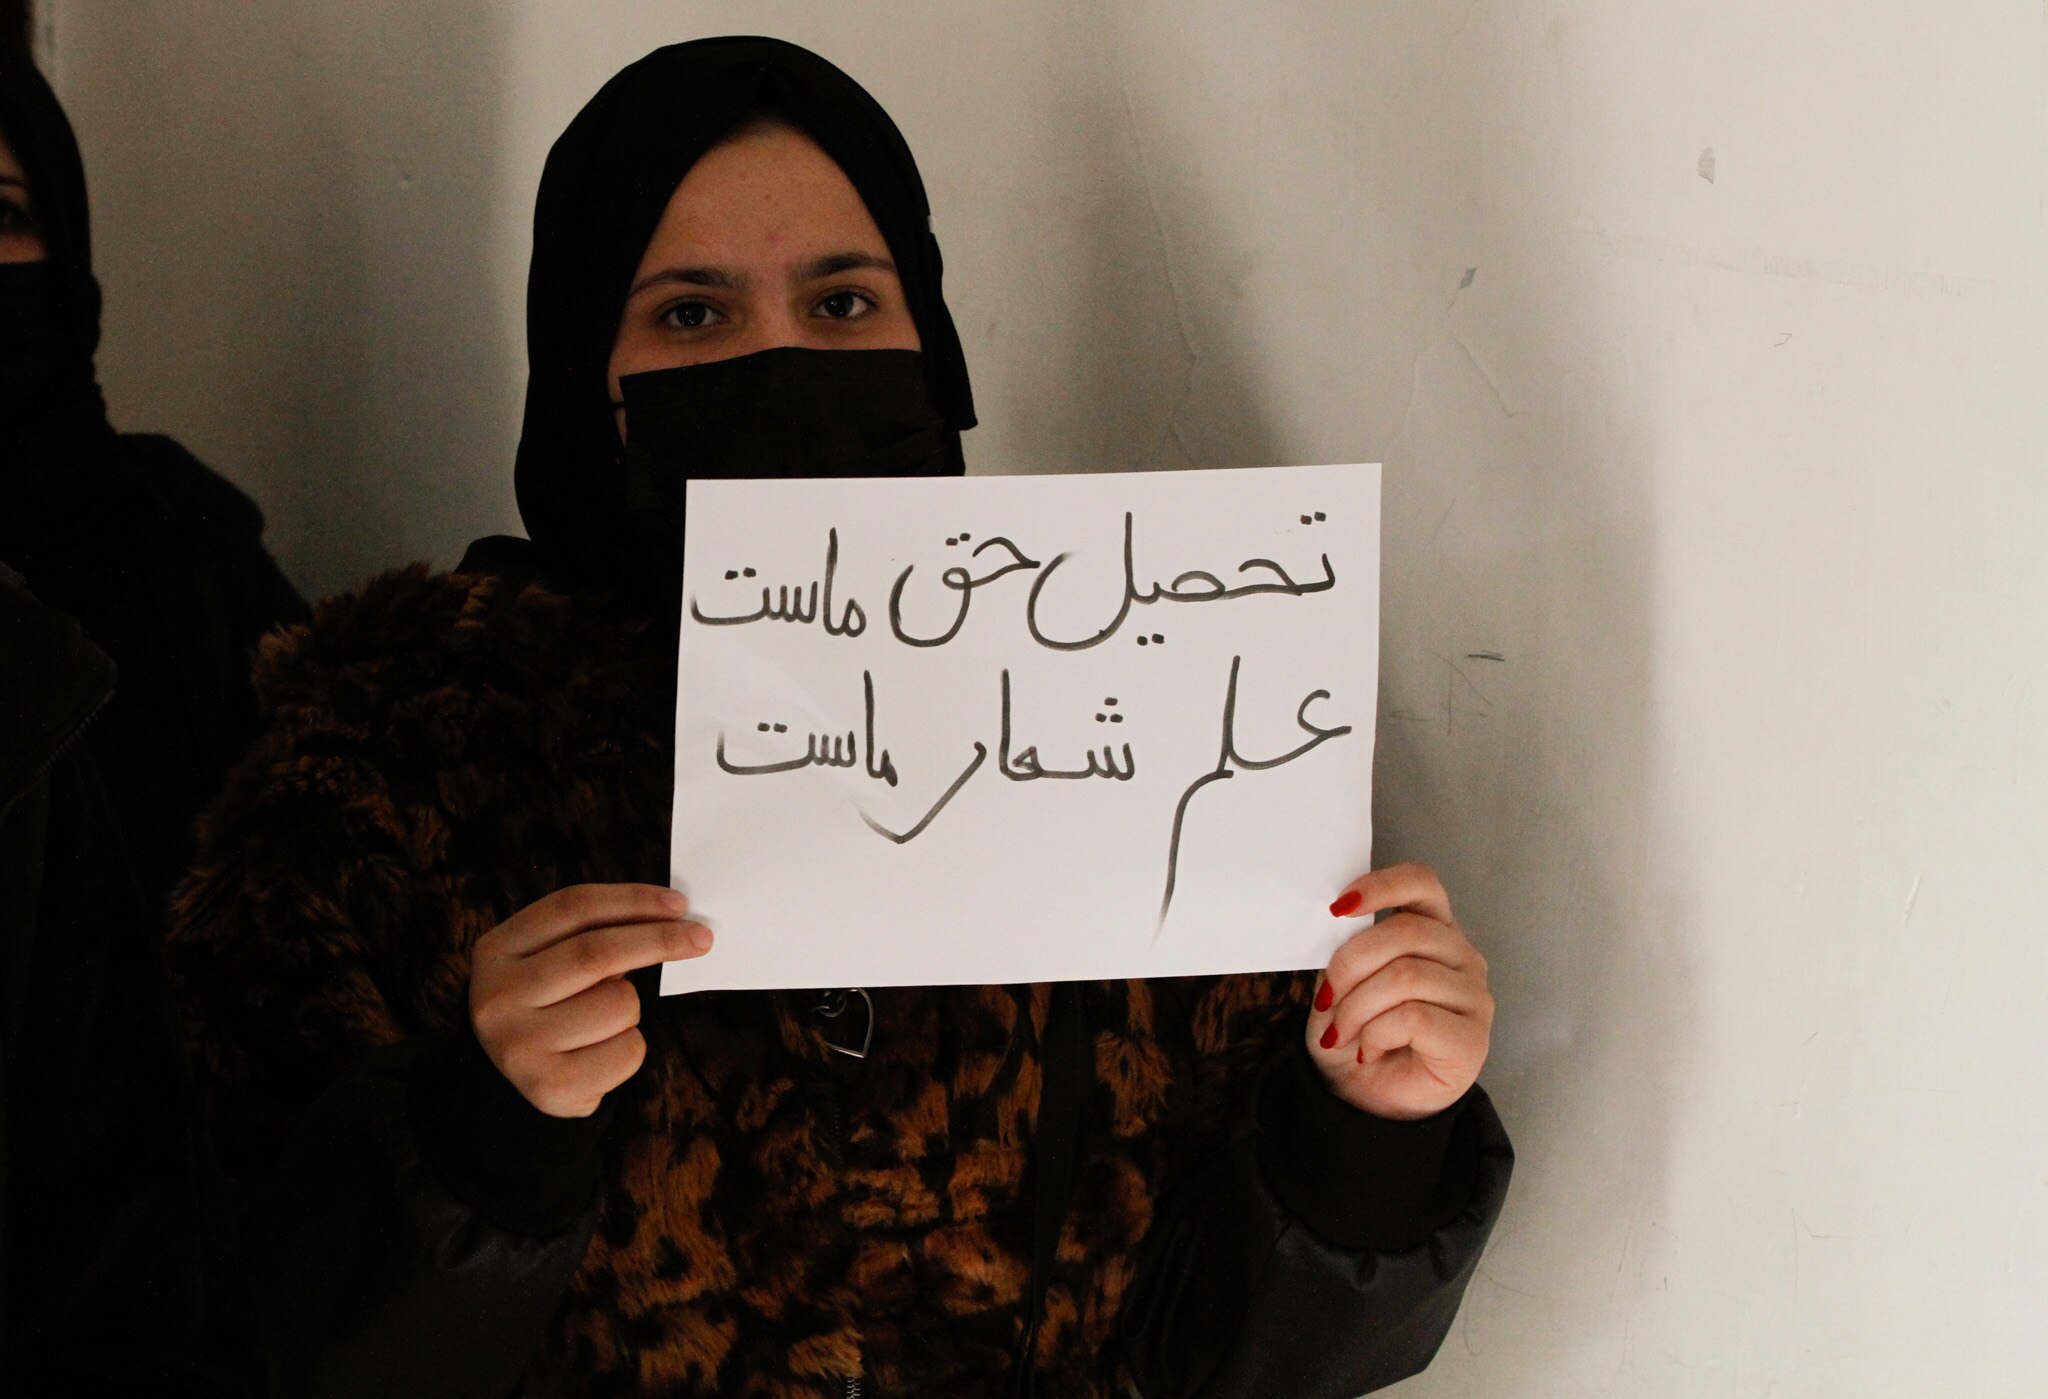 تحصیل حق ماست
علم شعار ماست